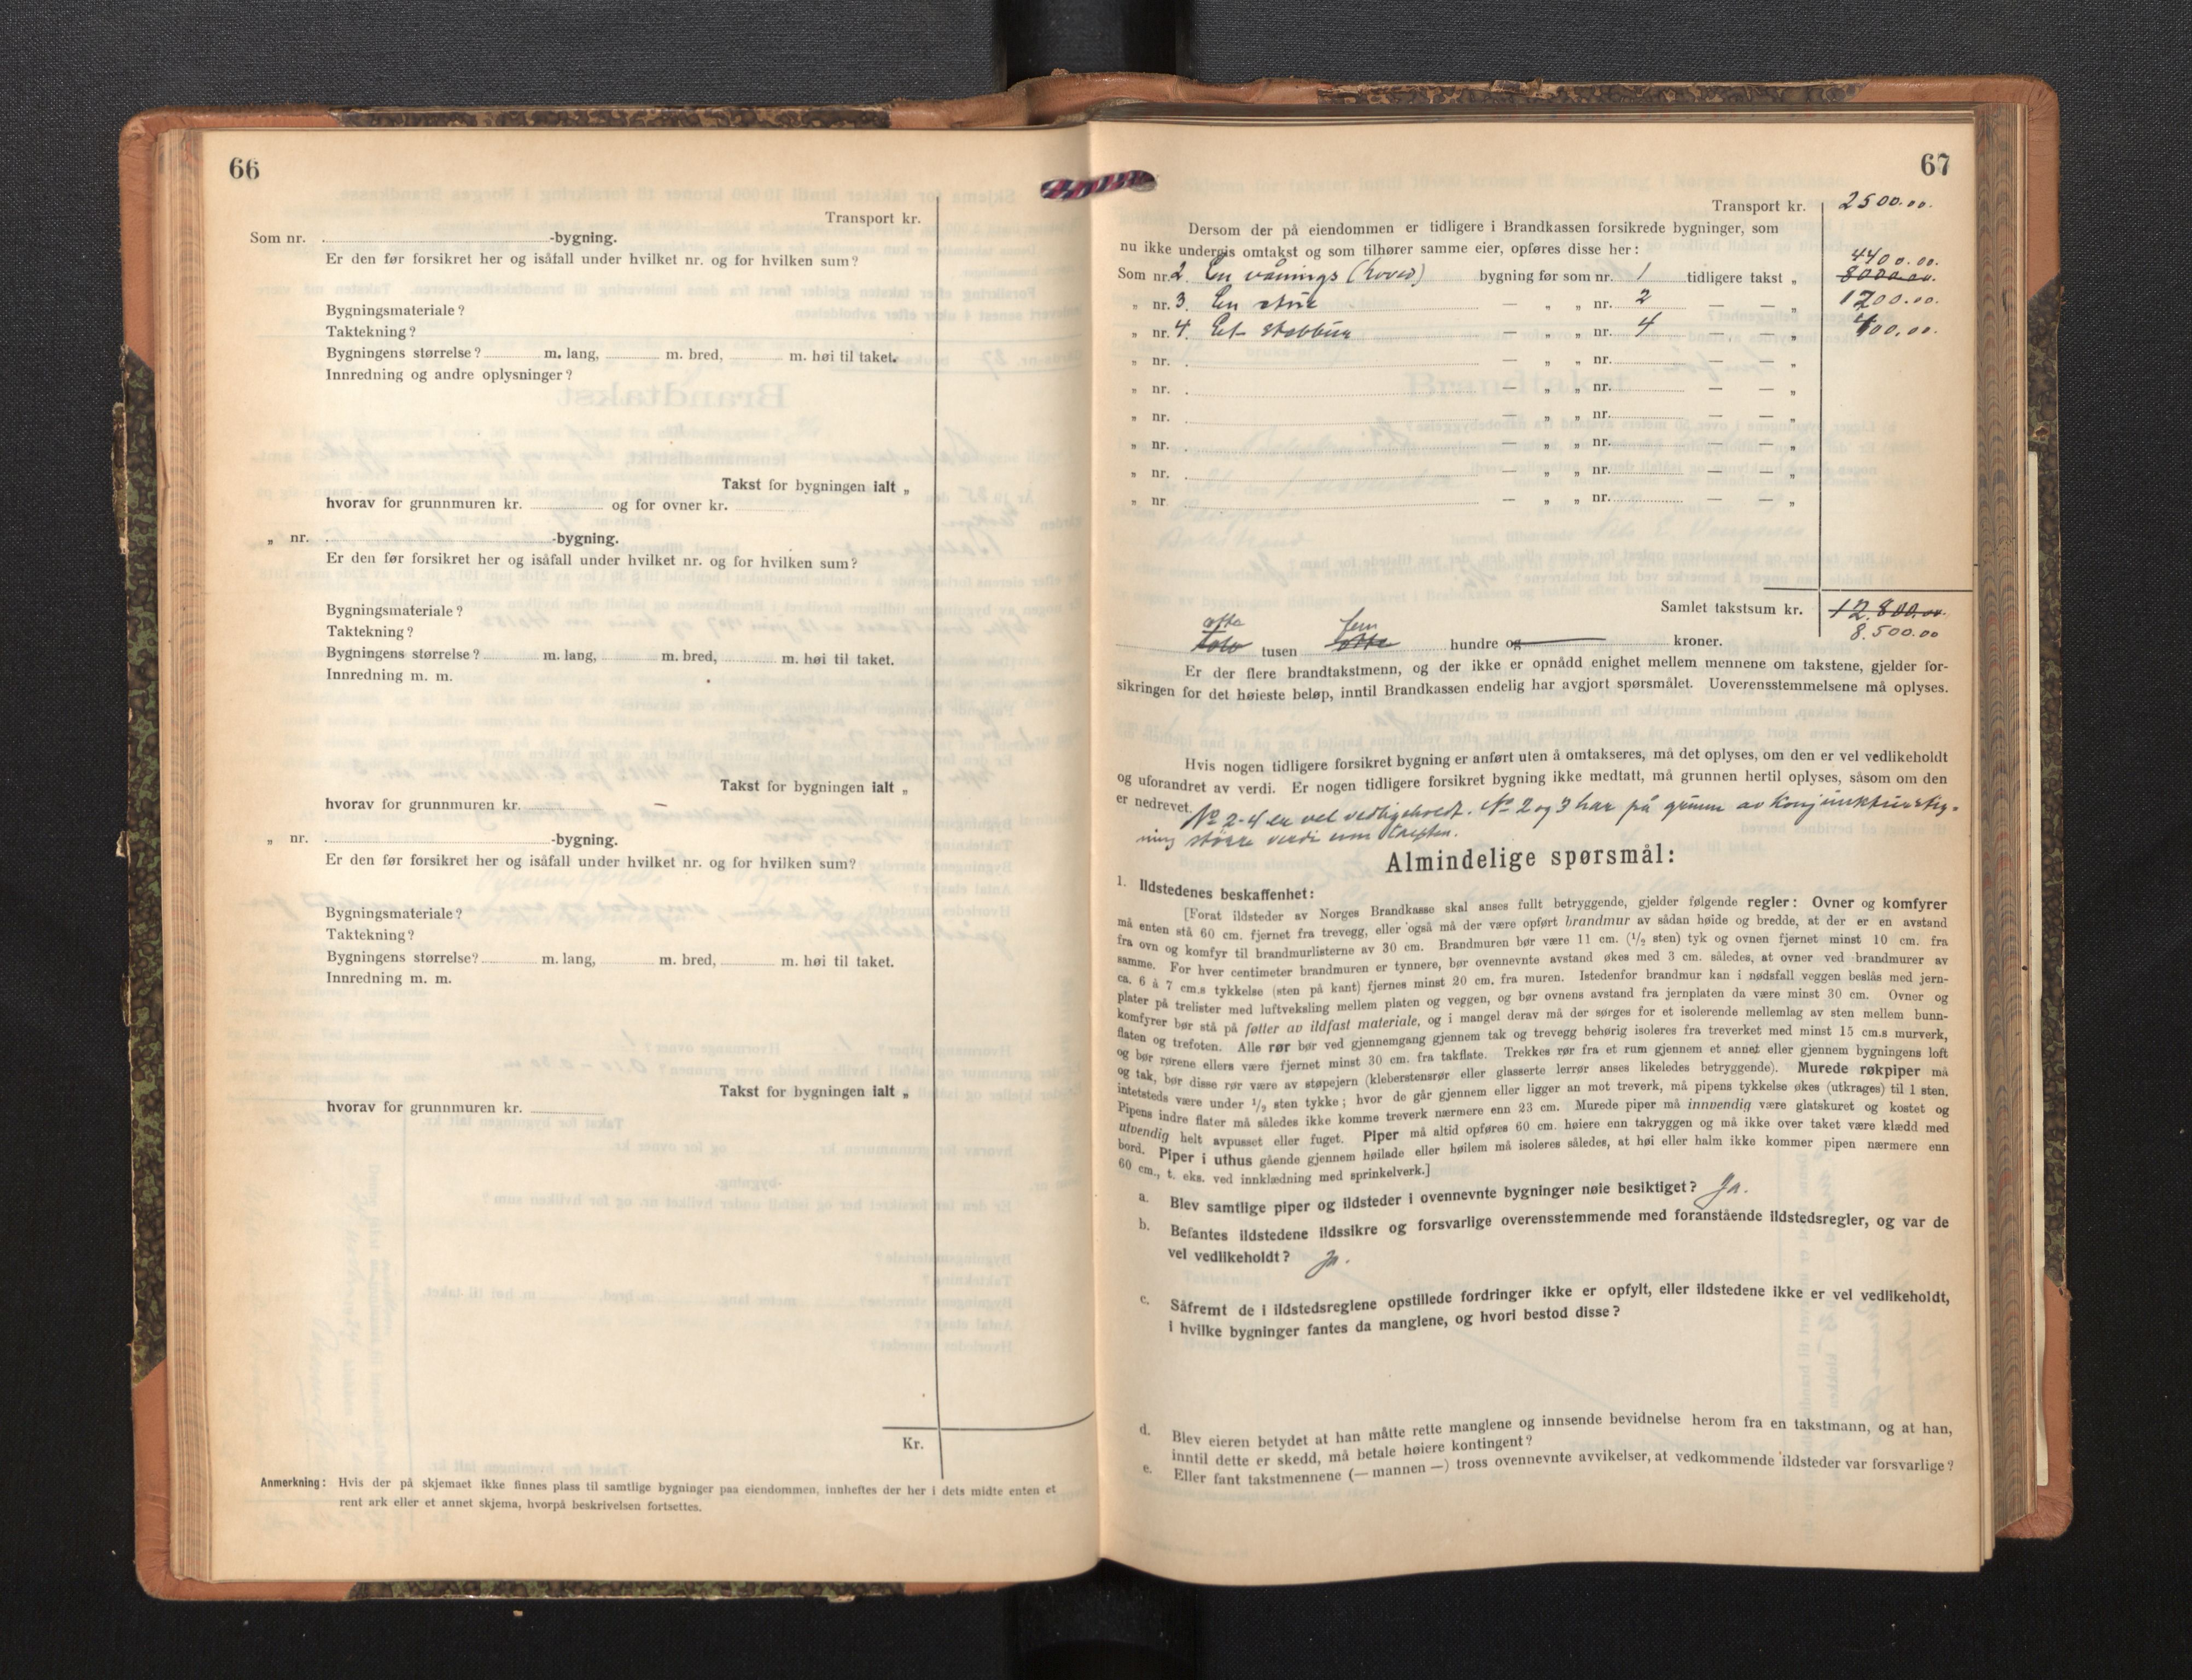 66
Transport kr.
Som nr. -bygning.
Er den før forsikret her og isåfall under hvilket nr. og for hvilken sum?
Bygningsmateriale?
Taktekning?
Bygningens størrelse? m. lang, m. bred, m. høi til taket.
Innredning og andre oplysninger?
Takst for bygningen ialt „
hvorav for grunnmuren kr. og for ovner kr.
„ nr. -bygning.
Er den før forsikret her og isåfall under hvilket nr. og for hvilken sum?
Bygningsmateriale?
Taktekning?
Bygningens størrelse? m. lang, m. bred, m. høi til taket.
Innredning m. m.
Takst for bygningen ialt „
hvorav for grunnmuren kr. —
„ nr. -bygning.
Er den før forsikret her og isåfall under hvilket nr. og for hvilken sum?
Bygningsmateriale?
Taktekning?
Bygningens størrelse? m. lang, m. bred, m. høi til taket.
Innredning m. m.
Takst for bygningen ialt „
hvorav for grunnmuren kr.
Kr.
Anmerkning: Hvis der på skjemaet ikke finnes plass til samtlige bygninger paa eiendommen, innheftes der her i dets midte enten et
rent ark eller et annet skjema, hvorpå beskrivelsen fortsettes.
67
Transport kr. 2500.00.
Dersom der på eiendommen er tidligere i Brandkassen forsikrede bygninger, som
nu ikke undergis omtakst og som tilhører samme eier, opføres disse her:
4400.00.
Som nr. 2 En vånings (hoved) bygning før som nr. 1 tidligere takst „ 8000.00.
„ nr. 3. En stue — „ „ nr. 2 — — „ 1200.00.
„ nr. 4. Et stabbur — „ „ nr. 4 — — „ 400.00.
„ nr. — „ „ nr. — — „
„ nr. — „ „ nr. — — „
„ nr. — „ „ nr. — — „
„ nr. — „ „ nr. — — „
„ nr. — „ „ nr. — — „
„ nr — „ „ nr. — — „
Samlet takstsum kr. 12.800.00.
8.500.00
otte fem
tolv tusen otte hundre og kroner.
Er der flere brandtakstmenn, og der ikke er opnådd enighet mellem mennene om takstene, gjelder for-
sikringen for det høieste beløp, inntil Brandkassen endelig har avgjort spørsmålet. Uoverensstemmelsene må oplyses.
Hvis nogen tidligere forsikret bygning er anført uten å omtakseres, må det oplyses, om den er vel vedlikeholdt
og uforandret av verdi. Er nogen tidligere forsikret bygning ikke medtatt, må grunnen hertil oplyses, såsom om den
er nedrevet. No 2-4 er vel vedligeholdt. No 2 og 3 har på grunn av Konjunkturstig-
ning større verdi enn taksten.
Almindelige spørsmål:
1. Ildstedenes beskaffenhet:
[Forat ildsteder av Norges Brandkasse skal anses fullt betryggende, gjelder følgende regler: Ovner og komfyrer
må enten stå 60 cm. fjernet fra trevegg, eller også må der være opført brandmur av sådan høide og bredde, at der er en avstand
fra ovn og komfyr til brandmurlisterne av 30 cm. Brandmuren bør være 11 cm. (1/2 sten) tyk og ovnen fjernet minst 10 cm. fra
samme. For hver centimeter brandmuren er tynnere, bør ovennevnte avstand økes med 3 cm. således, at ovner ved brandmurer av
ca. 6 à 7 cm.s tykkelse (sten på kant) fjernes minst 20 cm. fra muren. Istedenfor brandmur kan i nødsfall veggen beslås med jern-
plater på trelister med luftveksling mellem platen og veggen, og bør ovnens avstand fra jernplaten da være minst 30 cm. Ovner og
komfyrer bør stå på føtter av ildfast materiale, og i mangel derav må der sørges for et isolerende mellemlag av sten mellem bunn-
flaten og trefoten. Alle rør bør ved gjennemgang gjennem tak og trevegg behørig isoleres fra treverket med minst 15 cm.s murverk,
og bør rørene ellers være fjernet minst 30 cm. fra takflate. Trekkes rør fra et rum gjennem et annet eller gjennem bygningens loft
og tak, bør disse rør være av støpejern (kleberstensrør eller glasserte lerrør anses likeledes betryggende). Murede røkpiper må
intetsteds være under 1/2 sten tykke; hvor de går gjennem eller ligger an mot treverk, må pipens tykkelse økes (utkrages) til 1 sten.
Pipens indre flater må således ikke komme treverk nærmere enn 23 cm. Murede piper må innvendig være glatskuret og kostet og
utvendig helt avpusset eller fuget. Piper må altid opføres 60 cm. høiere enn takryggen og må ikke over taket være klædd med
bord. Piper i uthus gående gjennem høilade eller høilem må isoleres således, at høi eller halm ikke kommer pipen nærmere enn
60 cm., t. eks. ved innklædning med sprinkelverk.]
a. Blev samtlige piper og ildsteder i ovennevnte bygninger nøie besiktiget? Ja.
b. Befantes ildstedene ildssikre og forsvarlige overensstemmende med foranstående ildstedsregler, og var de
vel vedlikeholdt? Ja.
c. Såfremt de i ildstedsreglene opstillede fordringer ikke er opfylt, eller ildstedene ikke er vel vedlikeholdt,
i hvilke bygninger fantes da manglene, og hvori bestod disse?
d. Blev eieren betydet at han måtte rette manglene og innsende bevidnelse herom fra en takstmann, og at han,
inntil dette er skedd, må betale høiere kontingent?
e. Eller fant takstmennene (— mannen —) tross ovennevnte avvikelser, at vedkommende ildsteder var forsvarlige?